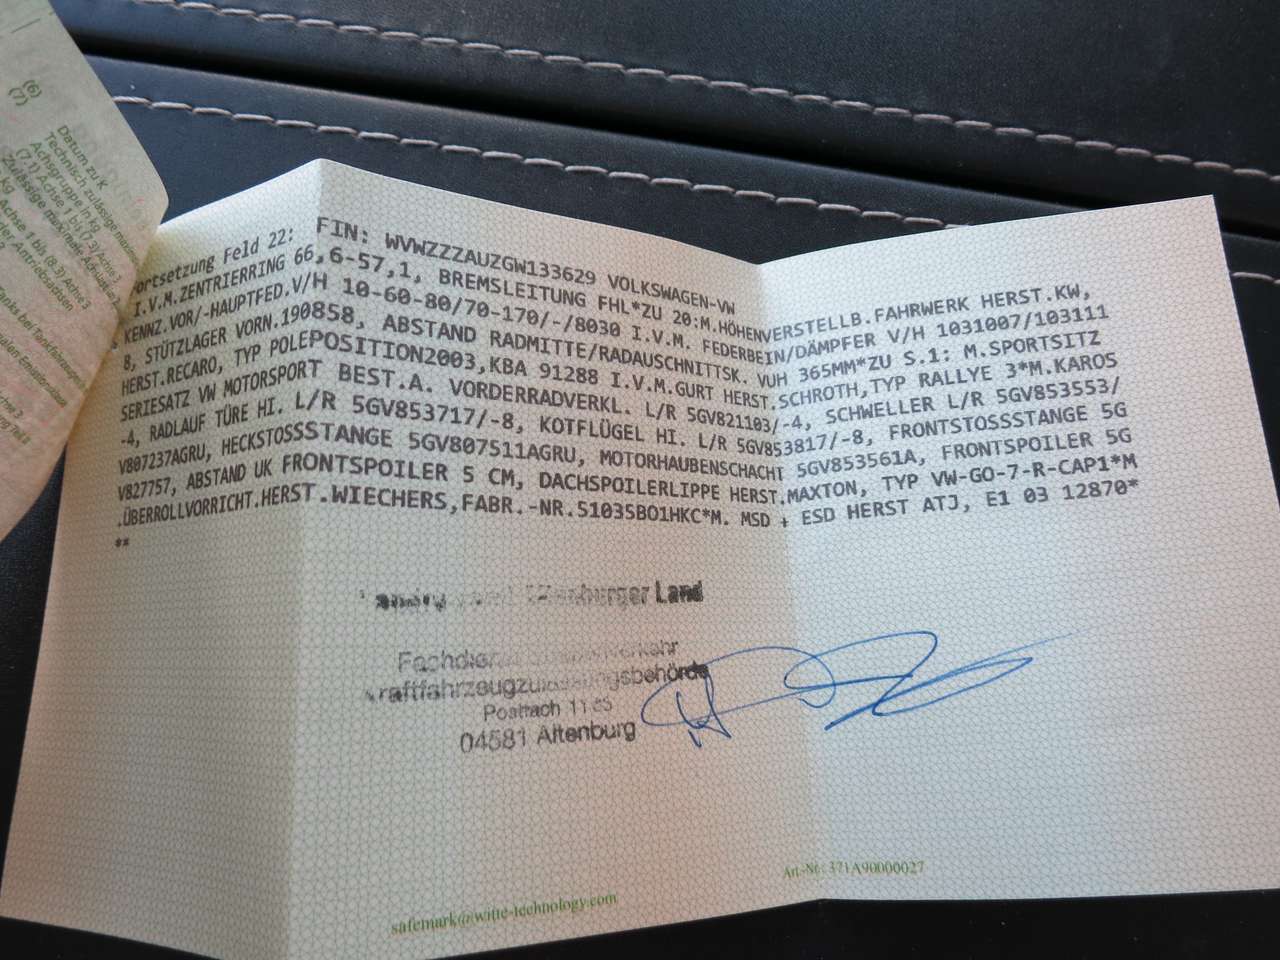 (6)
(7)
Datum zu K
Technisch zulässige
Achsgruppe in kg
(7.1) Achse 1 bis (7.3) Achse 3
Fortsetzung Feld 22: FIN: WVWZZZAUZGW133629 VOLKSWAGEN-VW
I.V.M.ZENTRIERRING 66,6-57,1, BREMSLEITUNG FHL*ZU 20:M.HÖHENVERSTELLB.FAHRWERK HERST.KW,
KENNZ.VOR/-HAUPTFED.V/H 10-60-80/70-170/-/8030 I.V.M. FEDERBEIN/DÄMPFER V/H 1031007/103111
8, STÜTZLAGER VORN.190858, ABSTAND RADMITTE/RADAUSCHNITTSK. VUH 365MM*ZU S.1: M.SPORTSITZ
HERST.RECARO, TYP POLEPOSITION2003,KBA 91288 I.V.M.GURT HERST.SCHROTH,TYP RALLYE 3*M.KAROS
SERIESATZ VW MOTORSPORT BEST.A. VORDERRADVERKL. L/R 5GV821103/-4, SCHWELLER L/R 5GV853553/
-4, RADLAUF TÜRE HI. L/R 5GV853717/-8, KOTFLÜGEL HI. L/R 5GV853817/-8, FRONTSTOSSTANGE 5G
V807237AGRU, HECKSTOSSSTANGE 5GV807511AGRU, MOTORHAUBENSCHACHT 5GV853561A, FRONTSPOILER 5G
V827757, ABSTAND UK FRONTSPOILER 5 CM, DACHSPOILERLIPPE HERST.MAXTON, TYP VW-GO-7-R-CAP1*M
.ÜBERROLLVORRICHT.HERST.WIECHERS,FABR.-NR.51035B01HKC*M. MSD + ESD HERST ATJ, E1 03 12870*
**
Altenburger Land
Fachdienst Straßenverkehr
Kraftfahrzeugzulassungsbehörde
Postfach 11 65
04581 Altenburg
Art-Nr: 371A90000027
safemark@witte-technology.com